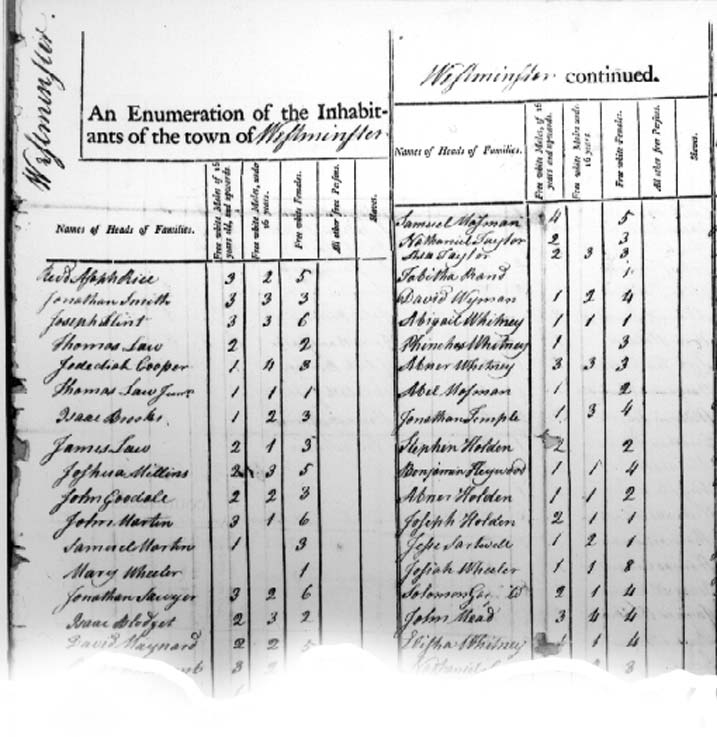 Westminster.
An Enumeration of the Inhabit-
ants of the town of Westminster
Names of Heads of Families. Free white Males of 16 years old, and upwards. Free white Males, under 16 years. Free white Females. All other free Persons. Slaves.
Revd Asaph Rice 3 2 5
Jonathan Smith 3 3 3
Joseph Flint 3 3 6
Thomas Law 2 2
Jedediah Cooper 1 4 3
Thomas Law Junr 1 1 1
Isaac Brooks 1 2 3
James Law 2 1 3
Joshua Millins 2 3 5
John Goodale 2 2 3
John Martin 3 1 6
Samuel Martin 1 3
Mary Wheeler 1
Jonathan Sawyer 3 2 6
Isaac Blodget 2 3 2
David Maynard 2 2 5
3 2
Westminster continued.
Names of Heads of Families. Free white Males, of 16 years and upwards. Free white Males under 16 years. Free white Females. All other free Persons. Slaves.
Samuel Mosman 4 5
Nathaniel Taylor 2 3
Asa Taylor 2 3 3
Tabitha Rand 1
David Wyman 1 2 4
Abigail Whitney 1 1 1
Phinehas Whitney 1 3
Abner Whitney 3 3 3
Abel Mosman 1 2
Jonathan Temple 1 3 4
Stephen Holden 2 2
Benjamin Heywood 1 1 4
Abner Holden 1 1 2
Joseph Holden 2 1 1
Jesse Sartwell 1 2 1
Josiah Wheeler 1 1 8
Solomon 2 1 4
John Mead 3 4 4
Elisha Whitney 1 1 4
Nathaniel 3